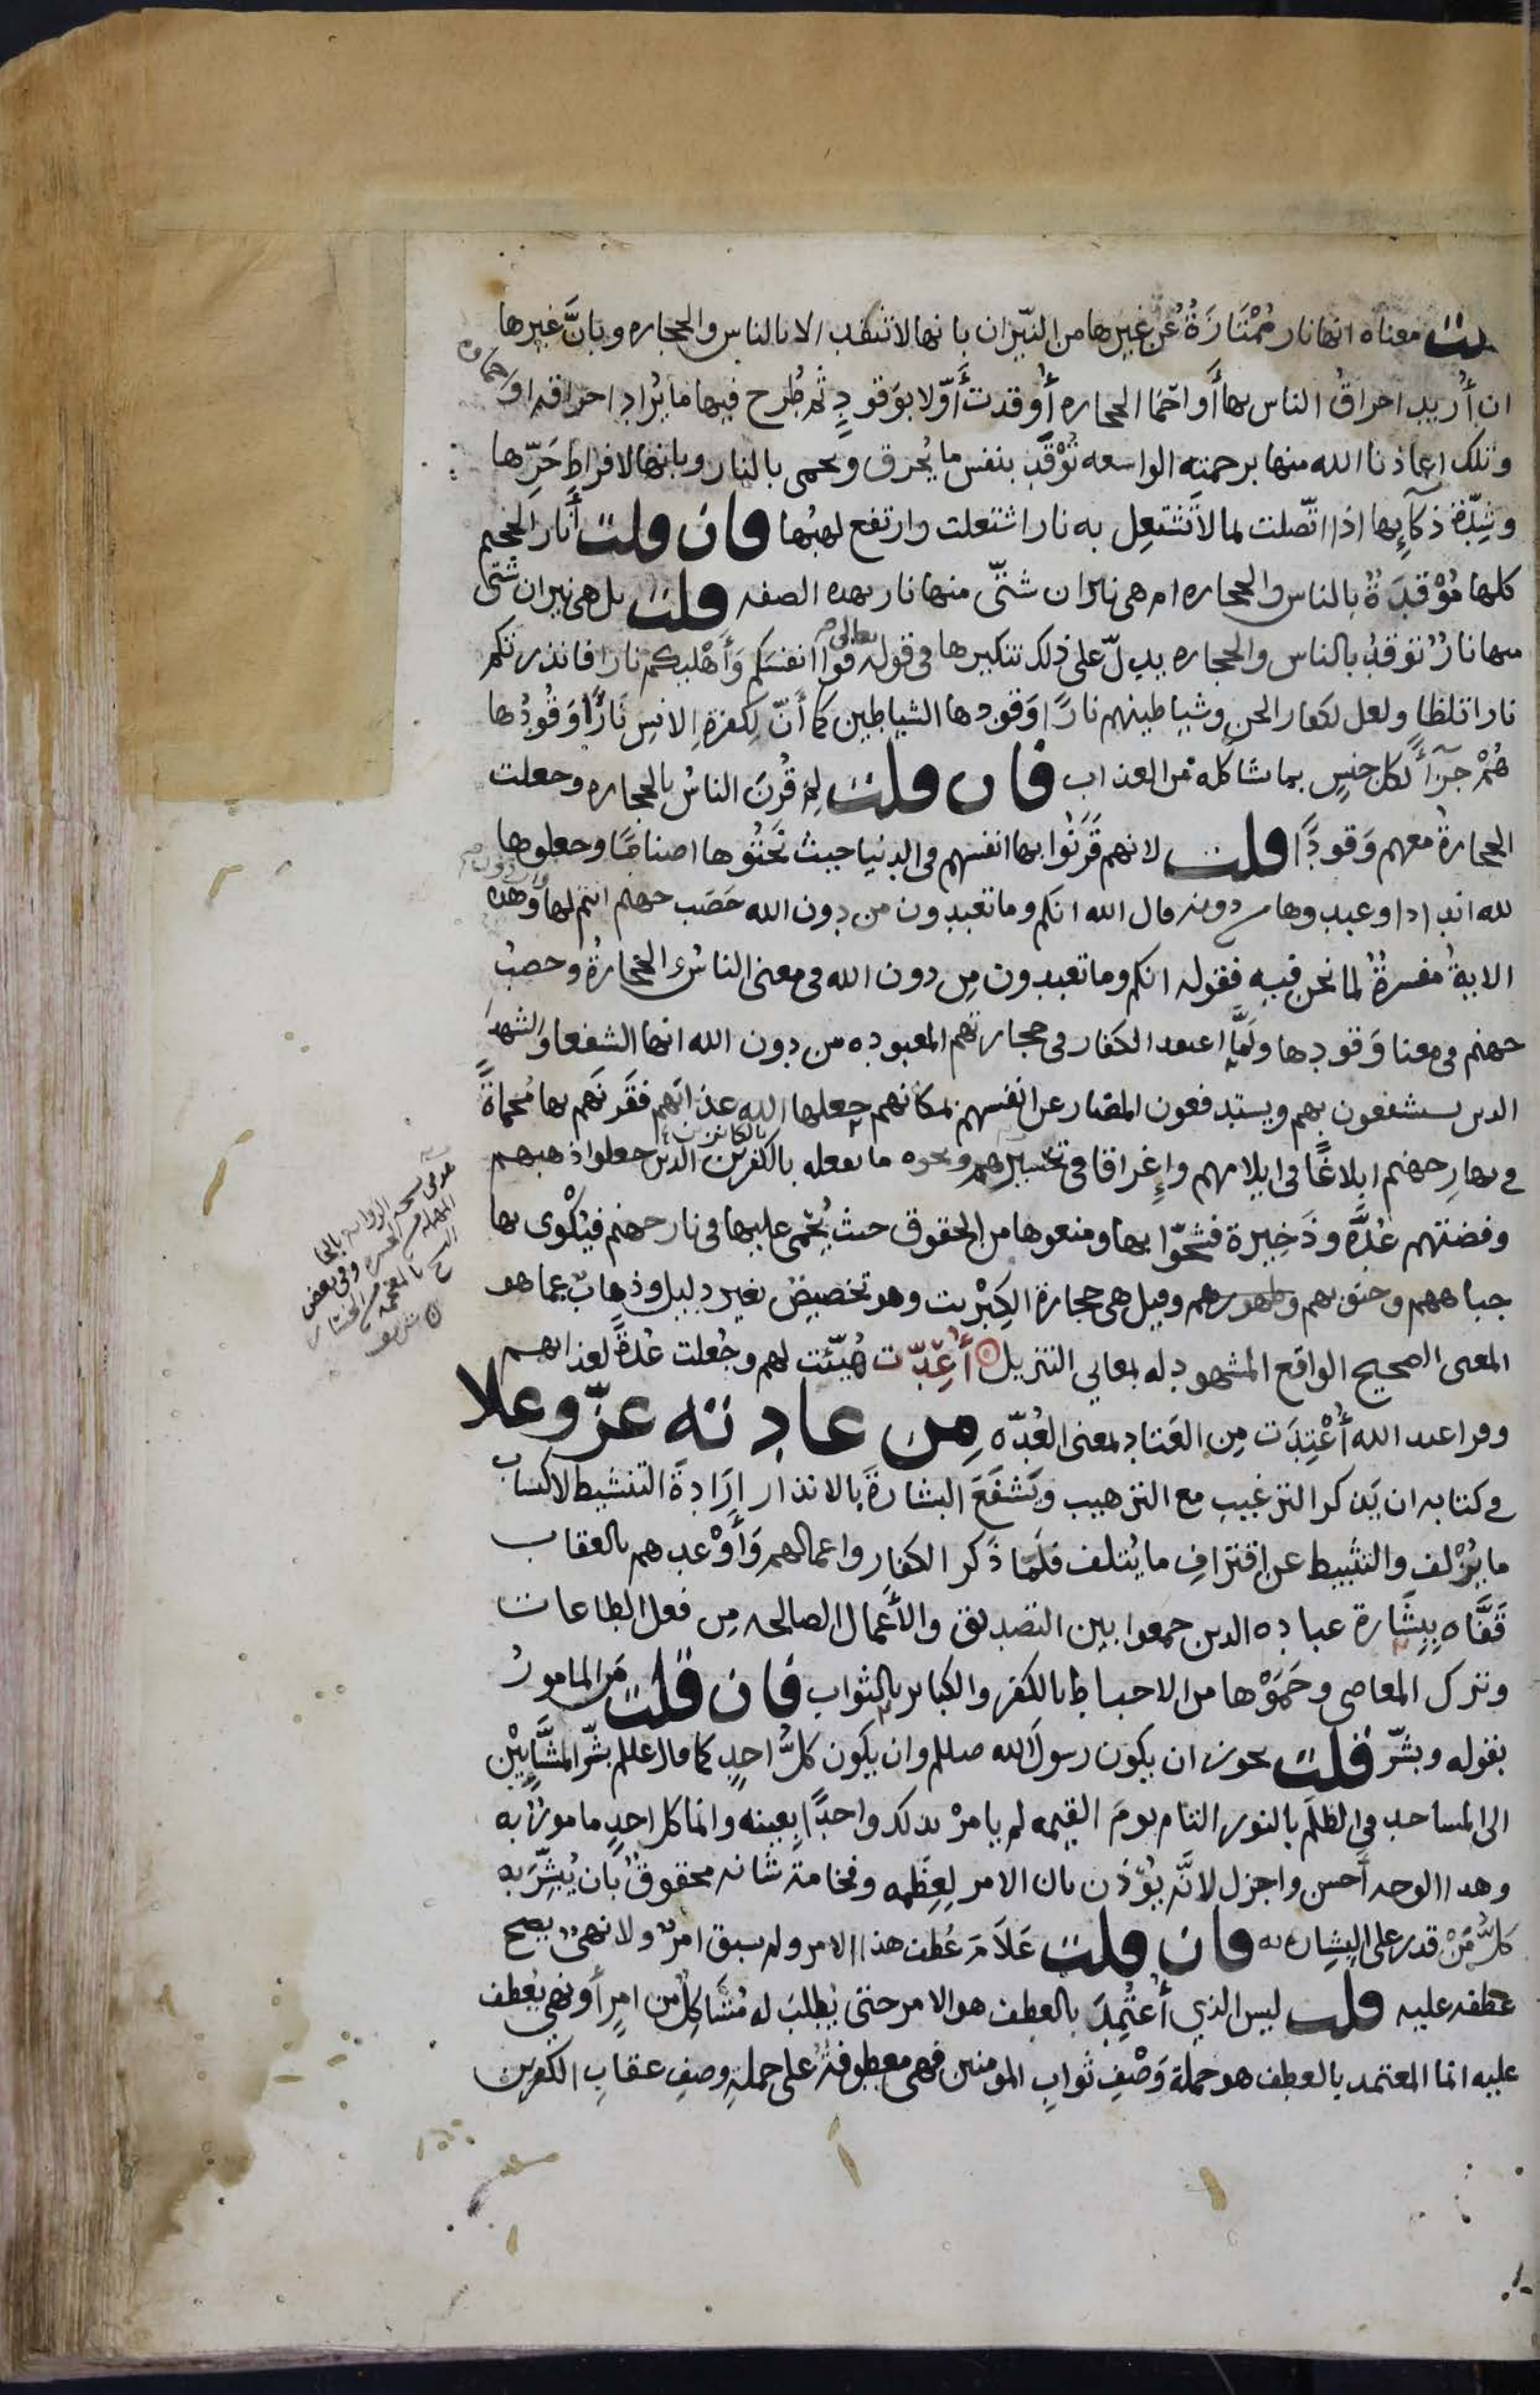 قلت معناه انها نار مُمْتَازَةٌ عن غيرها من النيّران بانها لا تتقد الا بالناس والحجاره وبانَّ غيرها
ان أُريد احراقُ الناس بها أَو احما الحجاره أُوقدت أَوّلا بوَقودٍ ثم طُرح فيها ما يُراد احراقه او احماوه
وتلك اعاذنا الله منها برحمته الواسعه تُوْقَد بنفس ما يُحرق ويحمى بالنار وبانها لافراطِ حَرِّها
وشِدّة ذكآيِها اذا اتّصلت لما لا تَشتعِل به نار اشتعلت وارتفع لهبُها فان قلت أنار الجحيم
كلها مُوْقَدَةٌ بالناس والحجاره ام هى نيران شتَّى منها نار بهده الصفه قلت بل هى نيران شتَّى
منها نارٌ تُوقَدُ بالناس والحجاره يدلّ على ذلك تنكيرها فى قوله تعالى قُوا انفسَكم وَأَهْليكم نارا فانذرتكم
نارا تلظا ولعل لكفار الجن وشياطينهم نارًا وَقودها الشياطين كما أنّ لِكفرةِ الانسِ نارًا وَقُودُها
هُمْ جزآءً لكل جنسٍ بما يشاكله من العذاب فان قلت لِمَ قُرنَ الناسُ بالحجاره وجعلت
الحجارةُ معهم وَقودًا قلت لانهم قَرَنُوا بها انفسهم فى الدنيا حيث نَحَتُوها اصنامًا وجعلوها
لله اندادا وعبدوها من دونه قال الله انكم وما تعبدون من دون الله حَصَب جهنم انتم لها واردون وهذه
الايةُ مفسرةٌ لما نحن فيه فقوله انكم وما تعبدون مِن دون الله فى معنى الناسُ والحجارةُ وحصبُ
جهنم فى معنا وَقودها ولَمّا اعتقد الكفار فى حجارتهم المعبوده من دون الله انها الشفعا والشهدا
الدين يستشفعون بهم ويستدفعون المضار عن انفسهم بمكانهم جعلها الله عذابَهم فقَرنَهم بها مُحماةً
فى نارِ جهنم ابلاغًا فى ايلامهم وإِغراقا فى تحسيرهم ونحوه ما يفعله بالكفرين الدين جعلوا ذهبهم
وفضتهم عُدَّه وذَخِيرة فشحّوا بها ومنعوها من الحقوق حيث يُحْمَى عليها فى نار جهنم فيُكْوى بها
جباههم وجنوبهم وظهورهم وقيل هى حجارة الكِبْريت وهو تخصيصٌ بغير دليل وذهابٌ عما هو
المعنى الصحيح الواقع المشهود له بمعاني التنزيل أُعِدّت هُيِّئت لهم وجُعلت عُدّةً لعذابهم
وقرا عبد الله أُعْتِدَت مِن العَتاد بمعنى العُدّه مِن عادته عزّ وعلا
فى كتابه ان يَذكر الترغيب مع الترهيب ويَشفَعَ البشارةَ بالانذار إرَادةَ التنشيط لاكتساب
ما يُزْلف والتثبيط عن اقترافِ ما يُتلف فلَمّا ذكر الكفار واعمالهم وَأَوْعدهم بالعقاب
قَفَّاه بِبِشَارة عباده الدين جمعوا بين التصديق والأعمال الصالحه مِن فعل الطاعات
وترك المعاصى وحَمَوْها من الاحباط بالكفر والكباير بالثواب فان قلت مَن المامورُ
بقوله وبشّر قلت يجوز ان يكون رسولَ الله صللم وان يكون كلُّ احدٍ كما قال عللم بشّر المشَّآيِيْن
الى المساجد فى الظلَم بالنور التام يومَ القيمه لم يامرْ بدلك واحدًا بعينه وانما كل احدٍ مامورٌ به
وهدا الوجه أحسن واجزل لانَّه يُؤْذن بان الامر لِعِظَمه وفخامة شانه محقوقٌ بأن يُبشِّرَ به
كلُّ مَنْ قدر على البِشارة به فان قلت عَلَامَ عُطف هذا الامر ولم يسبق امرٌ ولا نهىٌ يصح
عطفه عليه قلت ليس الذي أُعتُمِدَ بالعطف هو الامر حتى يُطلبَ له مُشَاكِلٌ من امرٍ أَو نهى يُعطف
عليه انما المعتمد بالعطف هو جملة وَصْفِ ثوابِ المومنين فهى معطوفةٌ على جملةِ وصفِ عقابِ الكفرين
بالكانزين